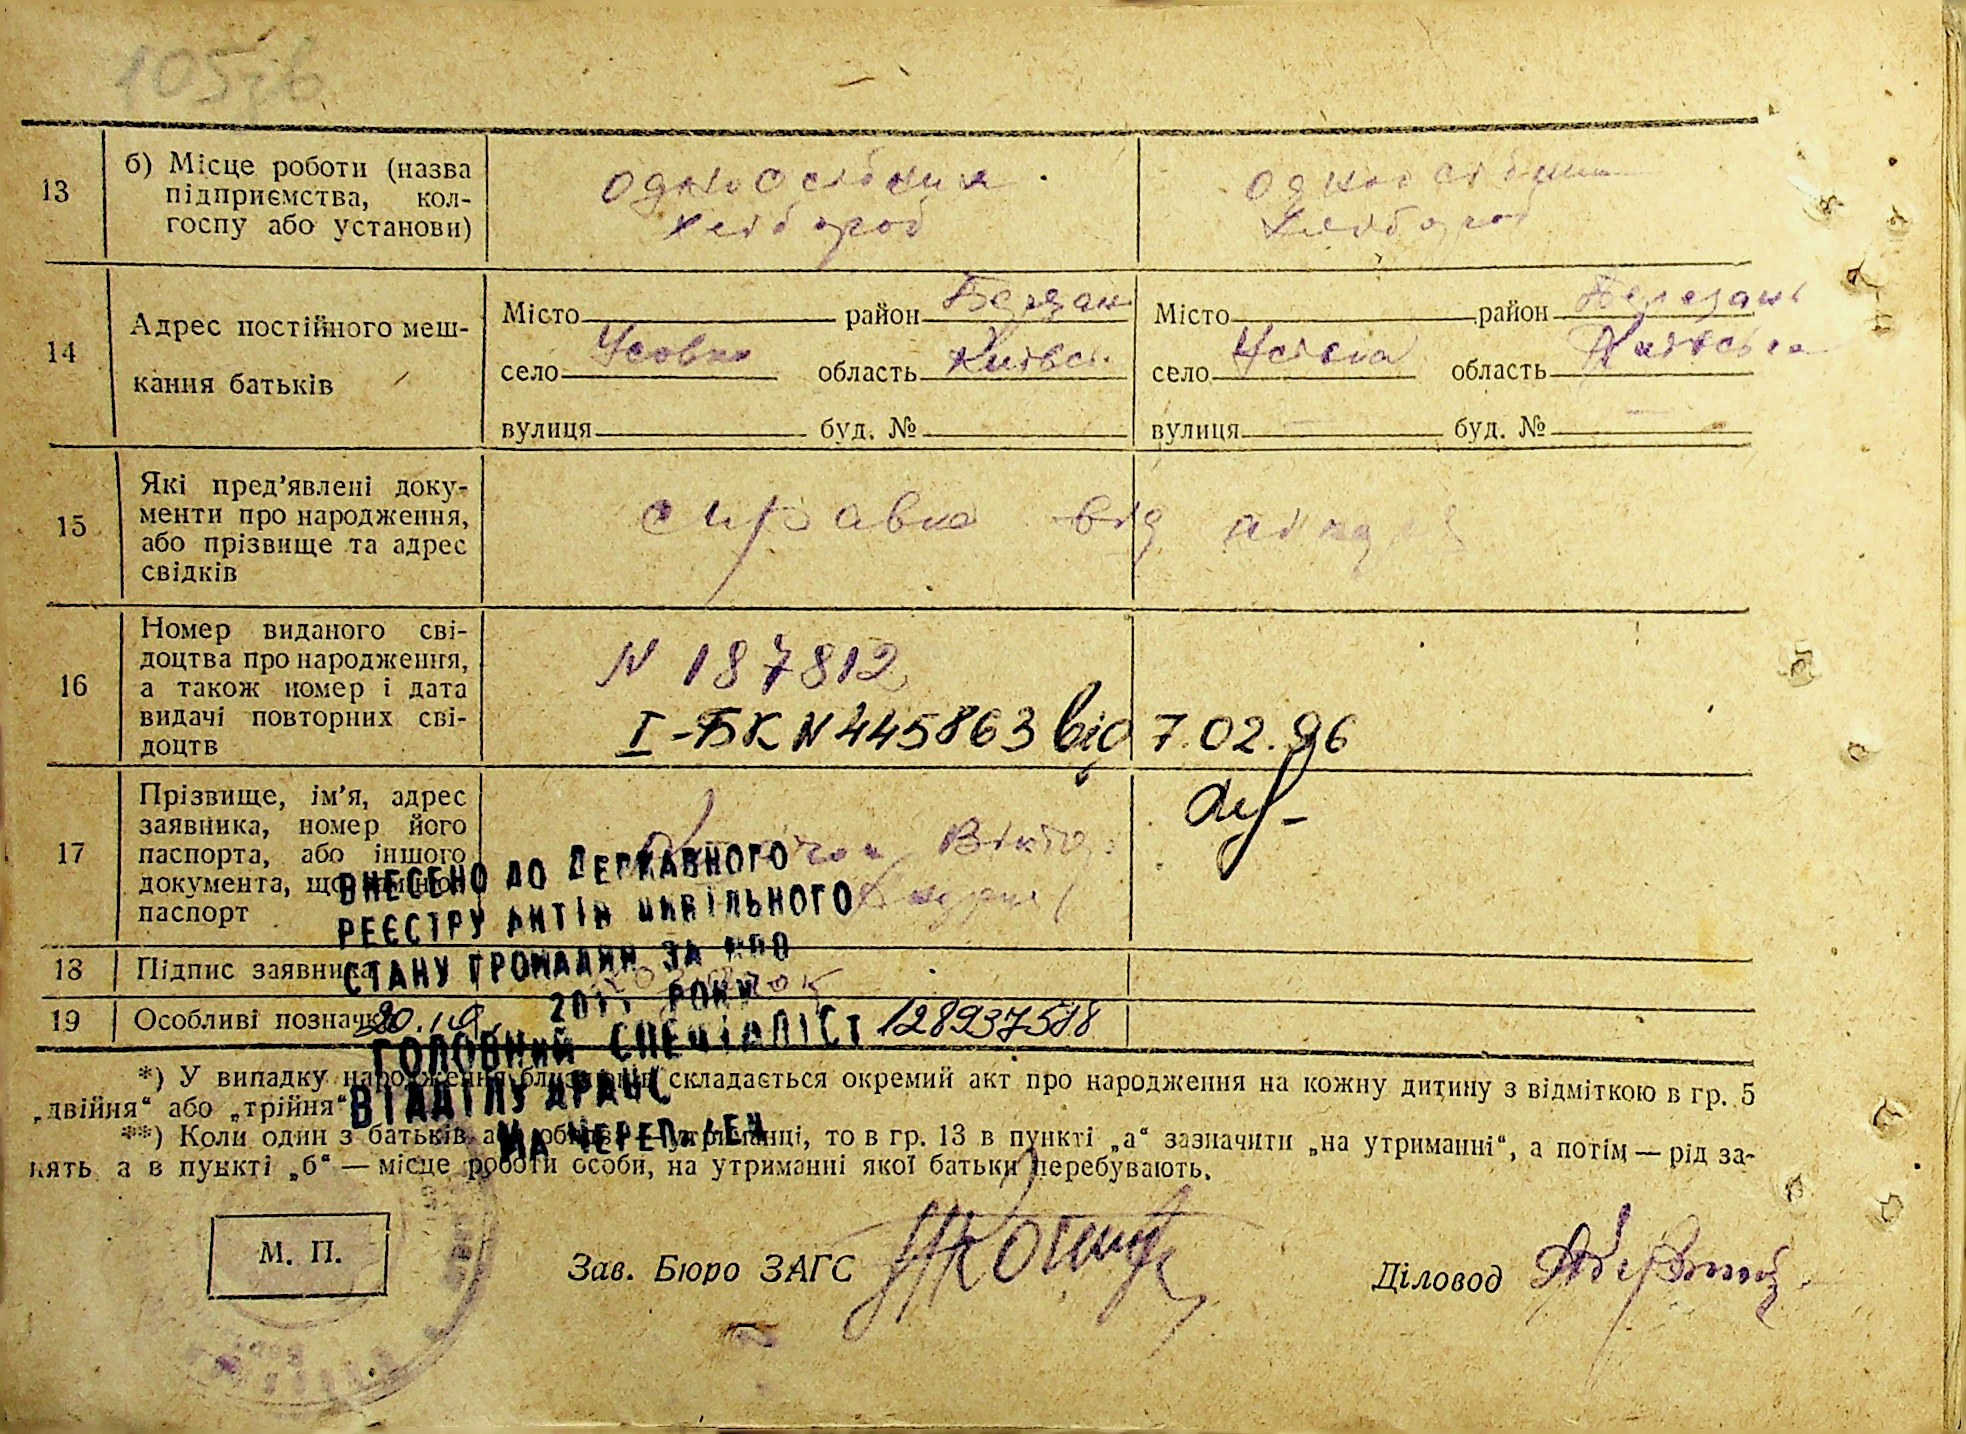 105
13
б) Місце роботи (назва
підприємства, кол-
госпу або установи)
одноосібник
хлібороб
одноосібник
хлібороб
14
Адрес постійного меш-
кання батьків
Місто район Березан
село Усовка область Київсь.
вулиця буд. №
Місто район Березань
село область Київська
вулиця буд. №
15
Які пред’явлені доку-
менти про народження,
або прізвище та адрес
свідків
справка від
16
Номер виданого сві-
доцтва про народження,
а також номер і дата
видачі повторних сві-
доцтв
N 187812
I-БК N 445863 від 7.02.96
17
Прізвище, ім’я, адрес
заявника, номер його
паспорта, або іншого
документа, що
паспорт
18
Підпис заявника
19
Особливі позначки
ВНЕСЕНО ДО ДЕРЖАВНОГО
РЕЄСТРУ АКТІВ ЦИВІЛЬНОГО
СТАНУ ГРОМАДЯН ЗА
РОКУ
ГОЛОВНИЙ СПЕЦІАЛІСТ
ВІДДІЛУ ДРАЦС
*) У випадку народження близнюків складається окремий акт про народження на кожну дитину з відміткою в гр. 5
„двійня“ або „трійня“
**) Коли один з батьків або обидва — утриманці, то в гр. 13 в пункті „а“ зазначити „на утриманні“, а потім — рід за-
нять а в пункті „б“ — місце роботи особи, на утриманні якої батьки перебувають.
М. П.
Зав. Бюро ЗАГС
Діловод